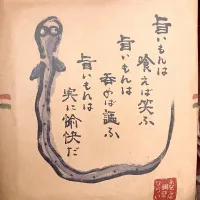 旨いもんは
喰えば笑ふ
旨いもんは
呑めば謳ふ
旨いもんは
実に愉快だ